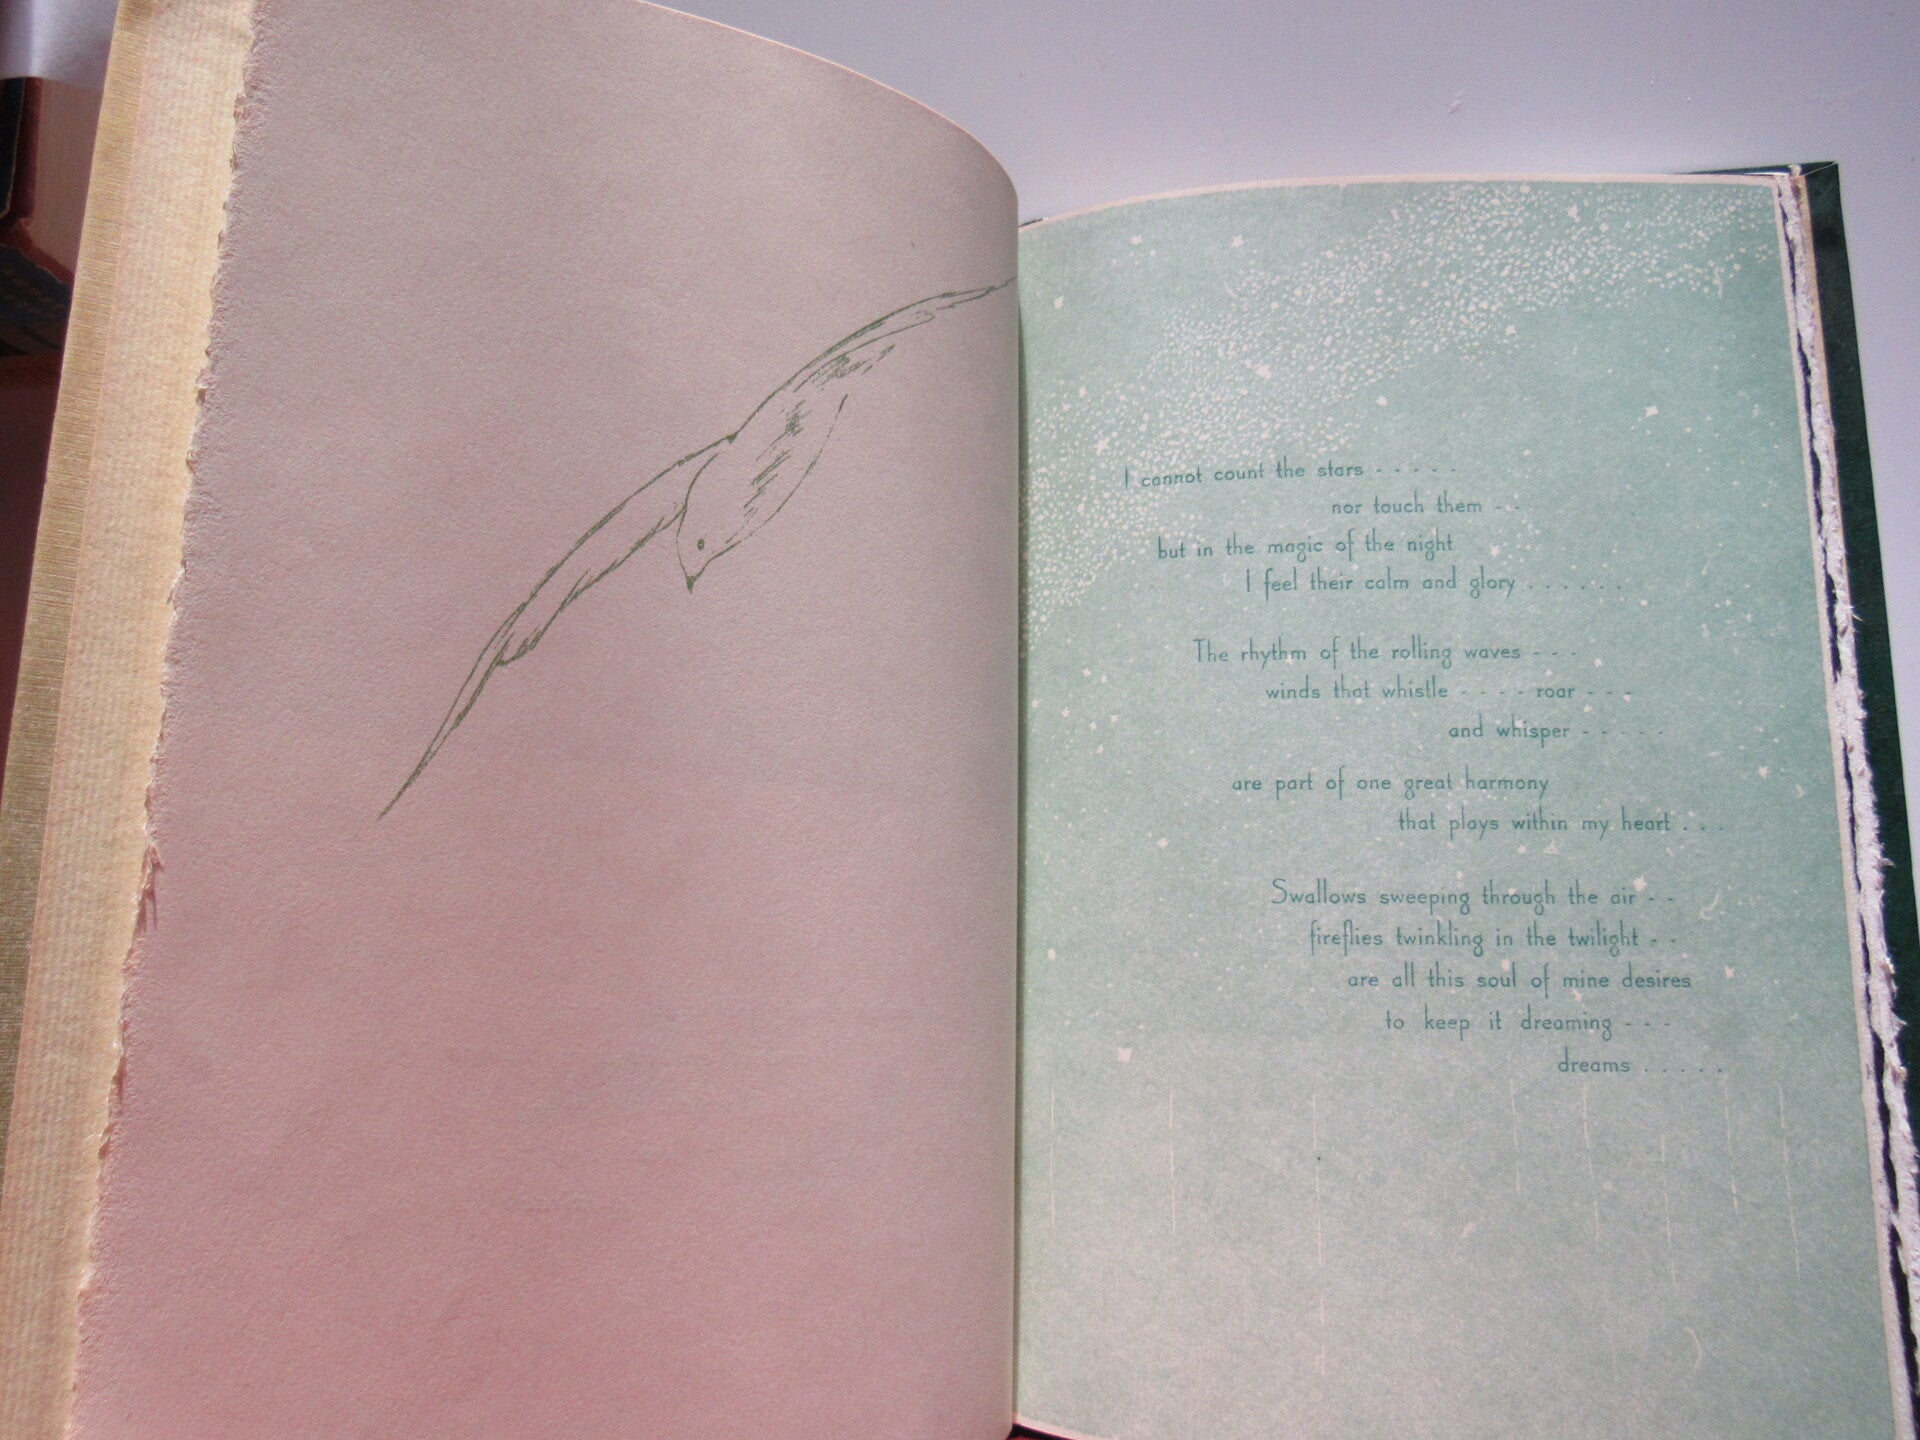 I cannot count the stars - - - - -
nor touch them - -
but in the magic of the night
I feel their calm and glory . . . . . .
The rhythm of the rolling waves - - -
winds that whistle - - - - roar - - -
and whisper - - - - -
are part of one great harmony
that plays within my heart . . .
Swallows sweeping through the air - -
fireflies twinkling in the twilight - -
are all this soul of mine desires
to keep it dreaming - - -
dreams . . . . .